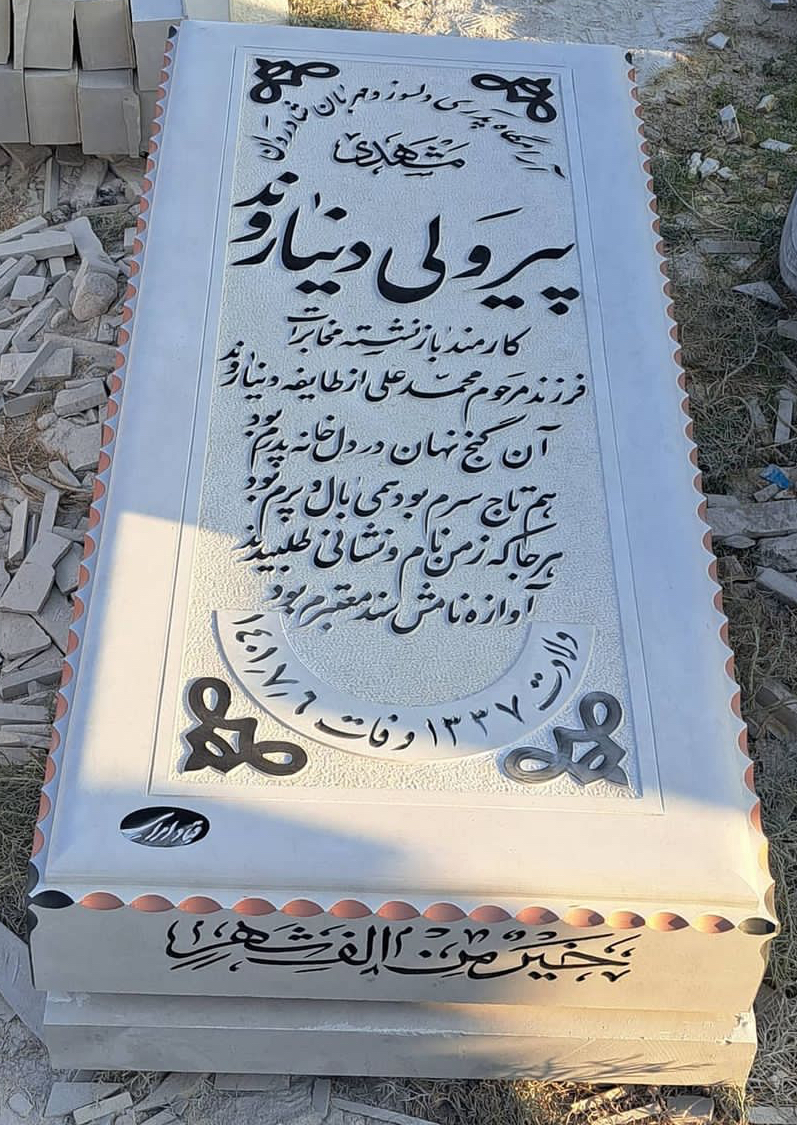 آرامگاه پدری دلسوز و مهربان شادروان
مشهدی
پیرولی دنیاروند
کارمند بازنشسته مخابرات
فرزند مرحوم محمد علی از طایفه دنیاروند
آن گنج نهان در دل خانه پدرم بود
هم تاج سرم بود همی بال و پرم بود
هر جا که ز من نام و نشانی طلبیدند
آوازه نامش سند معتبرم بود
ولادت ۱۳۳۷ وفات ۱۴۰۱٫۷٫۶
خیر من الف شهر